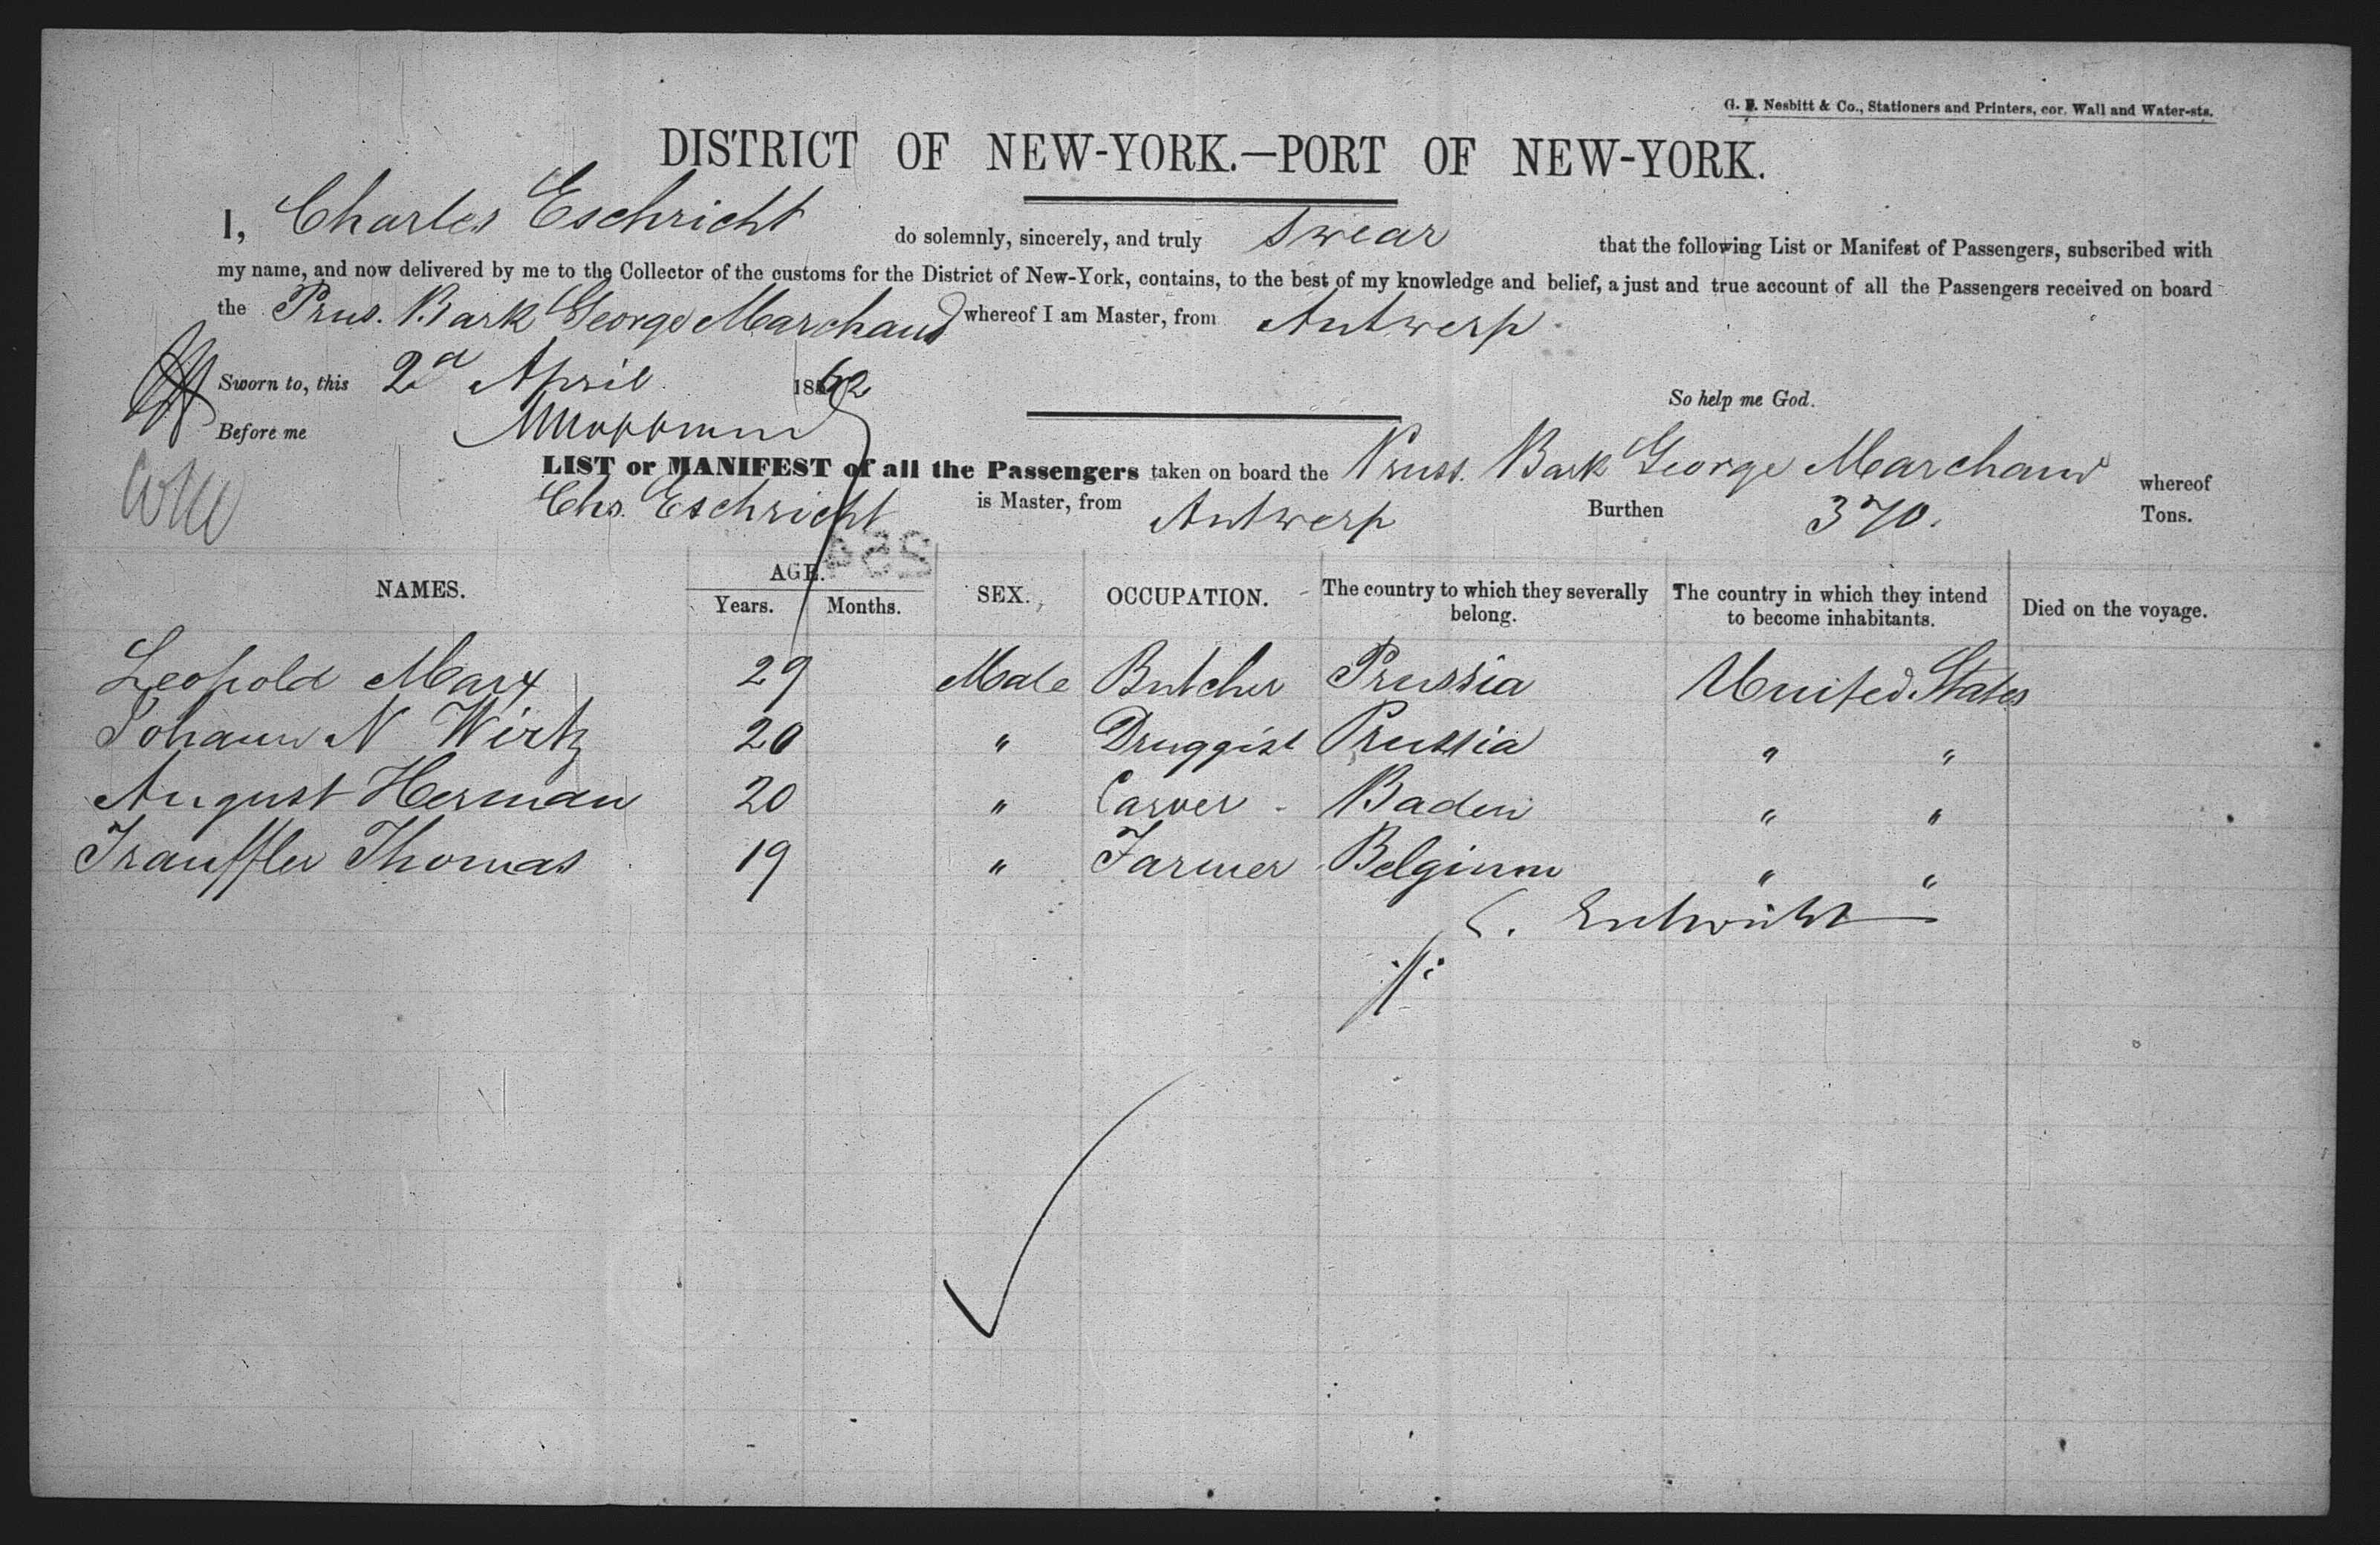 G. F. Nesbitt & Co., Stationers and Printers, cor. Wall and Water-sts.
DISTRICT OF NEW-YORK.—PORT OF NEW-YORK.
I, Charles Eschricht do solemnly, sincerely, and truly swear that the following List or Manifest of Passengers, subscribed with
my name, and now delivered by me to the Collector of the customs for the District of New-York, contains, to the best of my knowledge and belief, a just and true account of all the Passengers received on board
the Prus. Bark George Marchand whereof I am Master, from Antwerp.
Sworn to, this 2d April 1862
So help me God.
Before me
LIST or MANIFEST of all the Passengers taken on board the Pruss. Bark George Marchand whereof
Chs. Eschricht is Master, from Antwerp Burthen 370. Tons.
254
NAMES. AGE. SEX. OCCUPATION. The country to which they severally belong. The country in which they intend to become inhabitants. Died on the voyage.
Years. Months.
Leopold Marx 29 Male Butcher Prussia United States
Johann N Wirtz 20 " Druggist Prussia " "
August Herman 20 " Carver Baden " "
Trauffler Thomas 19 " Farmer Belgium " "